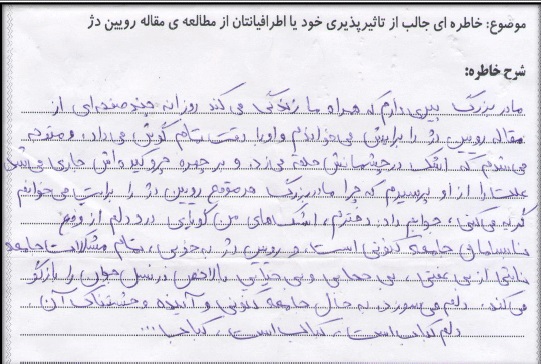 موضوع: خاطره ای جالب از تاثیرپذیری خود یا اطرافیانتان از مطالعه ی مقاله رویین دژ
شرح خاطره:
مادربزرگ پیری دارم که همراه ما زندگی می کند روزانه چند صفحه ای از
مقاله رویین دژ را برایش می خواندم و او با دقت تمام گوش می داد، و متوجه
می شدم که اشک در چشمانش حلقه می زد و بر چهره چروکیده اش جاری می شد
علت را از او پرسیدم که چرا مادربزرگ هر موقع رویین دژ را برایت می خوانم
گریه می کنی، جوابم داد: دخترم، اشک های من گویای درد دلم از وضع
نابسامان جامعه کنونی است، و رویین دژ به خوبی، تمام مشکلات جامعه
ناشی از بی عفتی بی حجابی و بی حیایی بالاخص در نسل جوان را بازگو
می کند. دلم می سوزد به حال جامعه کنونی و آینده وحشتناک آن،
دلم کباب است، کباب است، کباب...